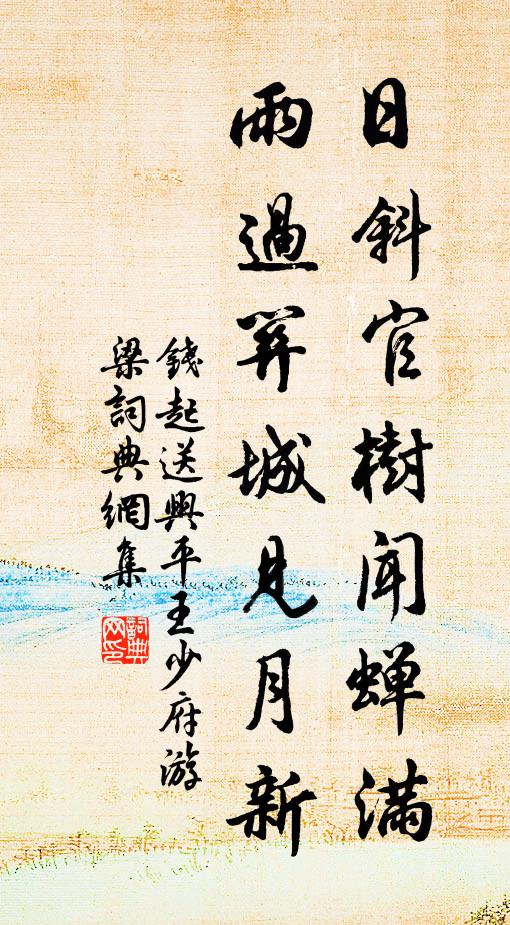 日斜官樹聞蝉滿
雨過關城見月新
錢起送興平王少府游
梁詞典網集
詞典
网印